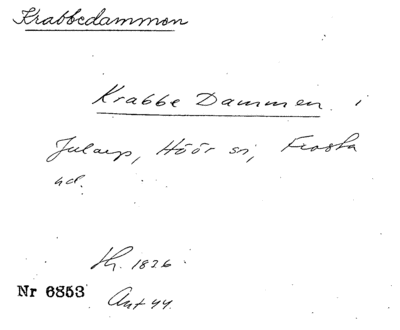 Krabbedammen
Krabbe Dammen i
Jularp, Höör sn, Frosta
hd.
Sk. 1826
Nr 6853
Ant 44.